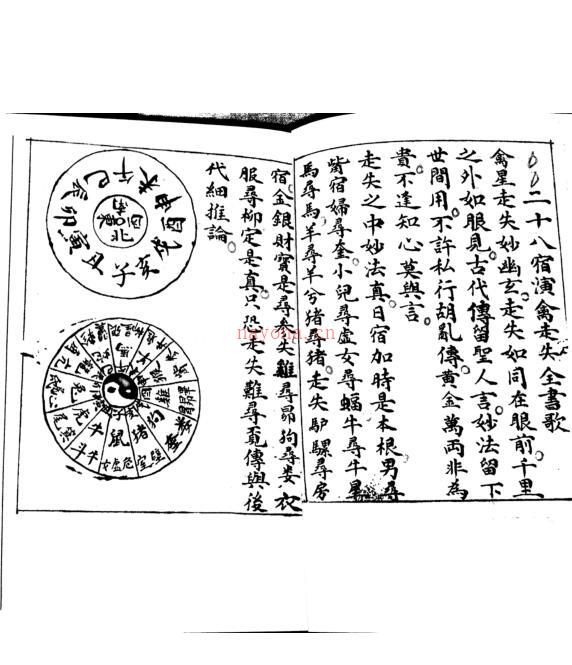 二十八宿演禽走失全書歌
禽星走失妙幽玄走失如同在眼前千里
之外如眼見古代傳留聖人言妙法留下
世間用不許私行胡亂傳黃金萬両非為
貴不逢知心莫與言
走失之中妙法真日宿加時是本根男尋
觜宿婦尋奎小兒尋虛女尋蝠牛尋牛星
馬尋馬羊尋羊兮猪尋猪走失驴騾尋房
宿金銀財寶是尋參失雞尋昴狗尋娄衣
服尋柳定是真只恐走失難尋覓傳與後
代細推論
子丑寅卯辰巳午未申酉戌亥
南
北
鼠
猪
狗
雞
牛
虎
兔
馬
女虛危
室壁
斗牛
nayona.cn